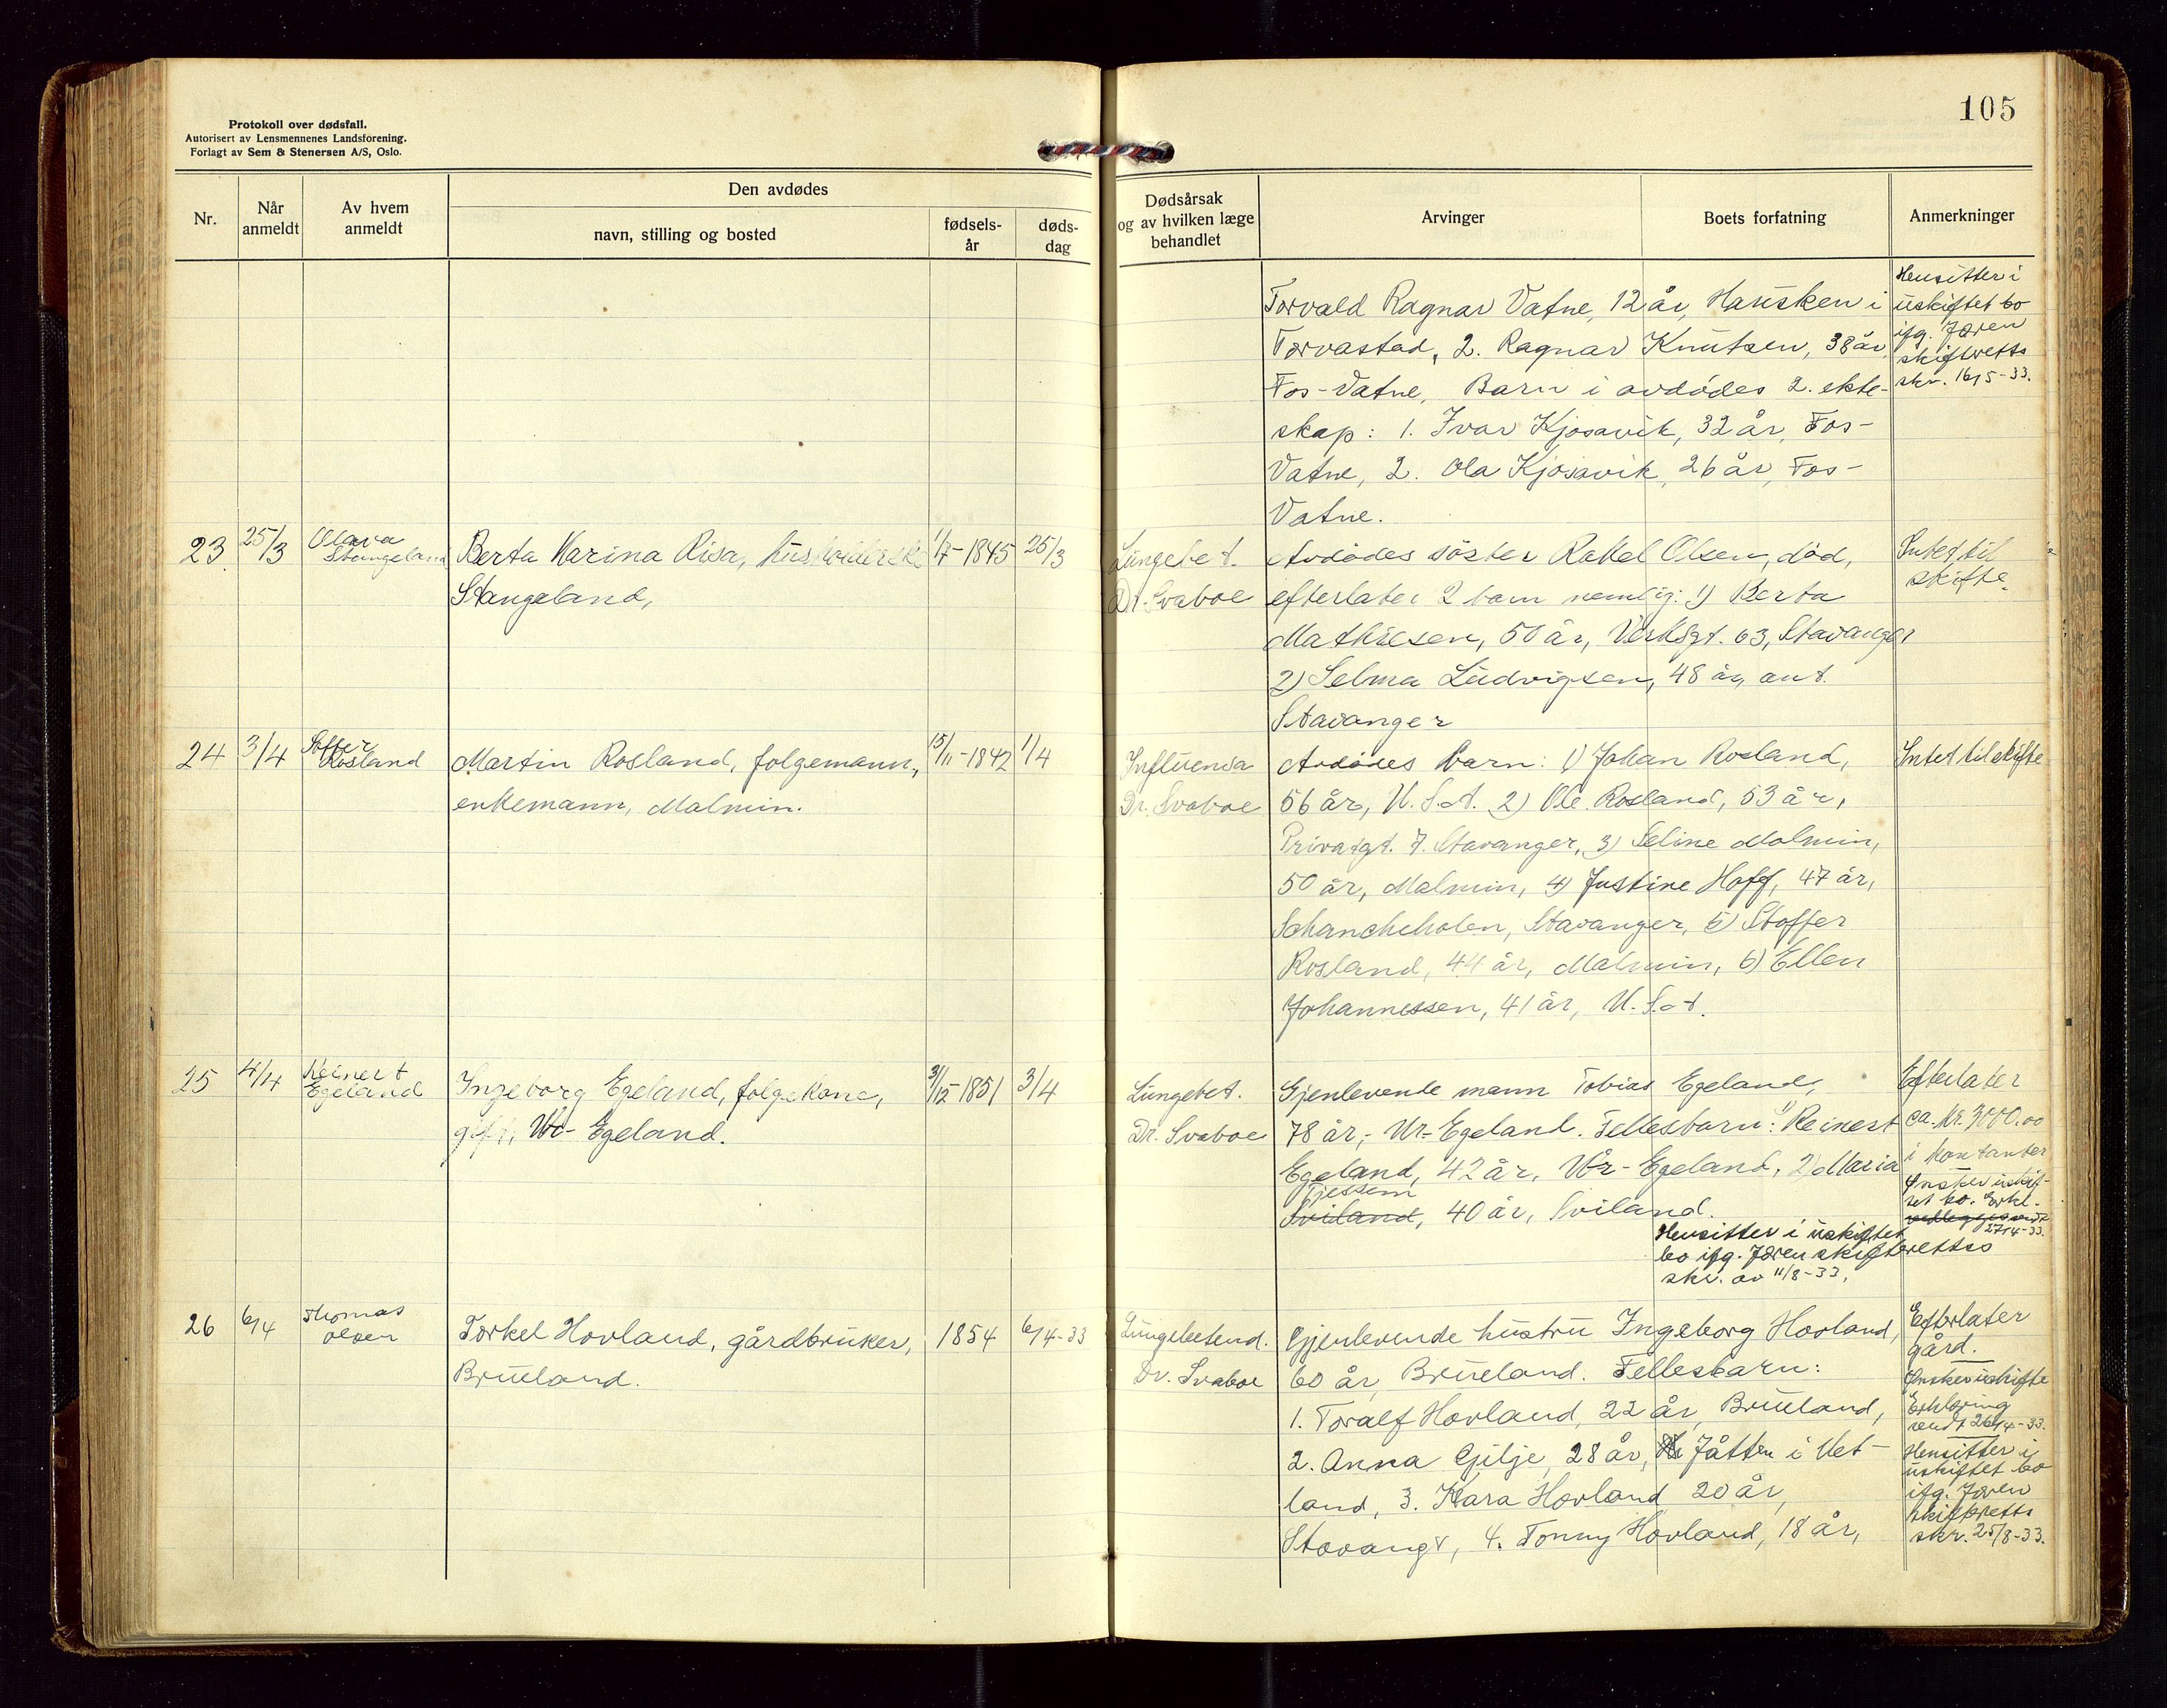 105
Protokoll over dødsfall.
Autorisert av Lensmennenes Landsforening.
Forlagt av Sem & Stenersen A/S, Oslo.
Nr.
Når anmeldt
Av hvem anmeldt
Den avdødes
navn, stilling og bosted
fødsels-år
døds-dag
Dødsårsak og av hvilken læge behandlet
Arvinger
Boets forfatning
Anmerkninger
Torvald Ragnar Vatne, 12 år, Hausken i
Torvastad, 2. Ragnar Knutsen, 38 år,
Fos-Vatne, Barn i avdødes 2. ekte-
skap: 1. Ivar Kjosavik, 32 år, Fos-
Vatne, 2. Ola Kjosavik, 26 år, Fos-
Vatne.
Hensitter i
uskiftet bo
ifg. Jæren
skifteretts
skr. 16/5-33.
23 25/3 Olava
Stangeland
Berta Karina Risa, husholderske 1/7-1845 25/3
Stangeland,
Lungebet.
Dr. Svaboe
Avdødes søster Rakel Olsen, død,
efterlater 2 barn nemlig: 1) Berta
Mathiesen, 50 år, Verksgt. 63, Stavanger
2) Selma Ludvigsen, 48 år, ant.
Stavanger
Intet til
skifte.
24 3/4 Stoffer
Rosland
Martin Rosland, folgemann, 15/11-1842 1/4
enkemann, Malmin.
Influensa
Dr. Svaboe
Avdødes barn: 1) Johan Rosland,
56 år, U.S.A. 2) Ole Rosland, 53 år,
Privatgt. 7. Stavanger, 3) Seline Malmin,
50 år, Malmin, 4) Justine Hoff, 47 år,
Schancheholen, Stavanger, 5) Stoffer
Rosland, 44 år, Malmin, 6) Ellen
Johannessen, 41 år, U.S.A.
Intet til skifte
25 4/4 Reinert
Egeland
Ingeborg Egeland, folgekone, 31/12-1851 3/4
gift, Ur-Egeland.
Lungebet.
Dr. Svaboe
Gjenlevende mann Tobias Egeland,
78 år,- Ur-Egeland. Fellesbarn: 1) Reinert
Egeland, 42 år, Ur-Egeland, 2) Maria
Tjessem
Sviland, 40 år, Sviland.
Hensitter i uskiftet
bo ifg. Jæren skifteretts
skr. av 11/8-33.
Efterlater
ca. kr. 3000.00
i kontanter
Ønsker uskif-
tet bo. Erkl.
27/4-33.
26 6/4 Thomas
Olsen
Torkel Hovland, gårdbruker, 1854 6/4-33
Brueland.
Lungebetend.
Dr. Svaboe
Gjenlevende hustru Ingeborg Hovland,
60 år, Brueland. Fellesbarn:
1. Toralf Hovland, 22 år, Brueland,
2. Anna Gilje, 28 år, Jåtten i Het-
land, 3. Kara Hovland 20 år,
Stavangr, 4. Tonny Hovland, 18 år,
Efterlater
gård.
Ønsker uskifte
Erklæring
sendt 26/4-33.
Hensitter i
uskiftet bo
ifg. Jæren
skifteretts
skr. 25/8-33.